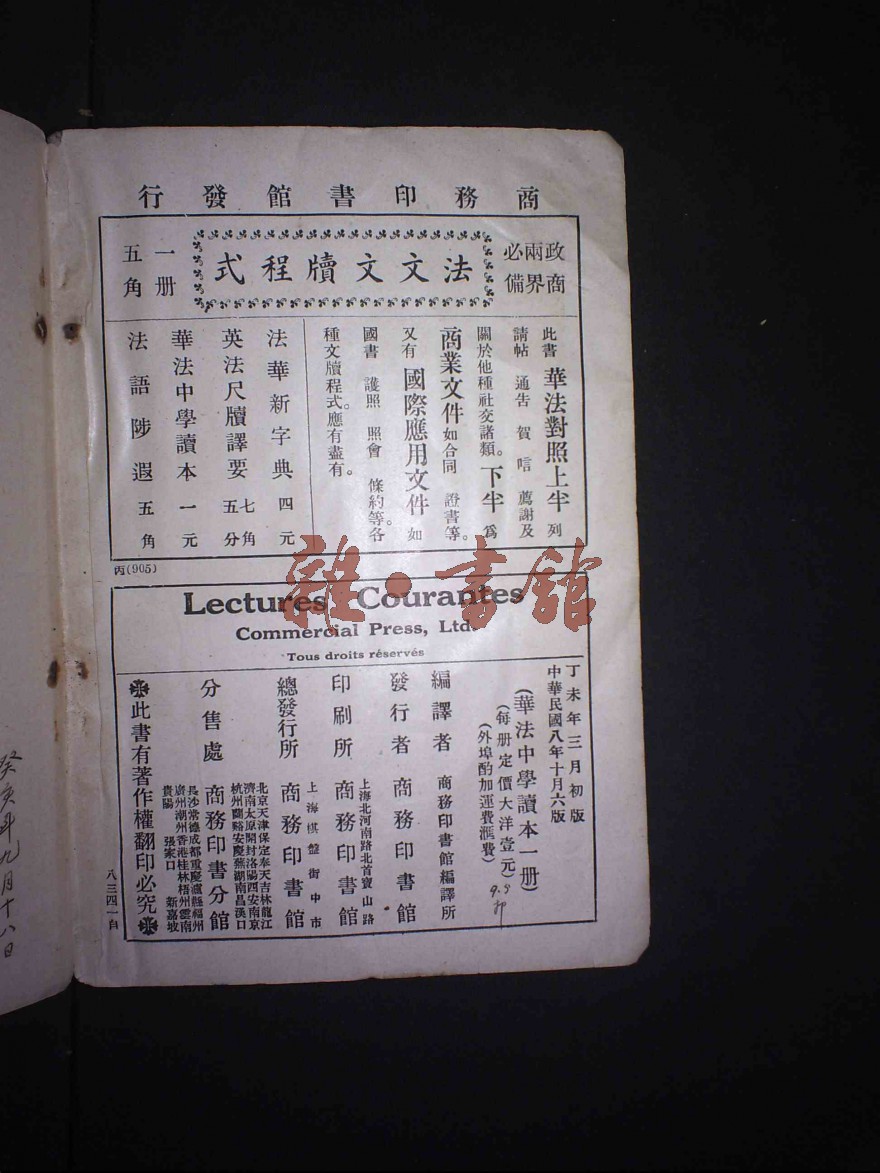 商務印書館發行
政商兩界必備
法文文牘程式
一册五角
此書華法對照上半列
請帖 通告 賀唁 薦謝及
關於他種社交諸類。下半爲
商業文件如合同 證書等。
又有國際應用文件如
國書 護照 照會 條約等。各
種文牘程式。應有盡有。
法華新字典 四元
英法尺牘譯要 七角五分
華法中學讀本 一元
法語陟遐 五角
丙(905)
雜·書館
Lectures Courantes
Commercial Press, Ltd.
Tous droits réservés
丁未年三月初版
中華民國八年十月六版
(華法中學讀本一册)
(每册定價大洋壹元)
(外埠酌加運費滙費)
編譯者 商務印書館編譯所
發行者 商務印書館
上海北河南路北首寶山路
印刷所 商務印書館
上海棋盤街中市
總發行所 商務印書館
北京天津保定奉天吉林龍江
濟南太原開封洛陽西安南京
杭州蘭谿安慶蕪湖南昌漢口
分售處 商務印書分館
長沙常德成都重慶瀘縣福州
廣州潮州香港桂林梧州雲南
貴陽 張家口 新嘉坡
此書有著作權翻印必究
八三四一自
癸亥年九月十八日